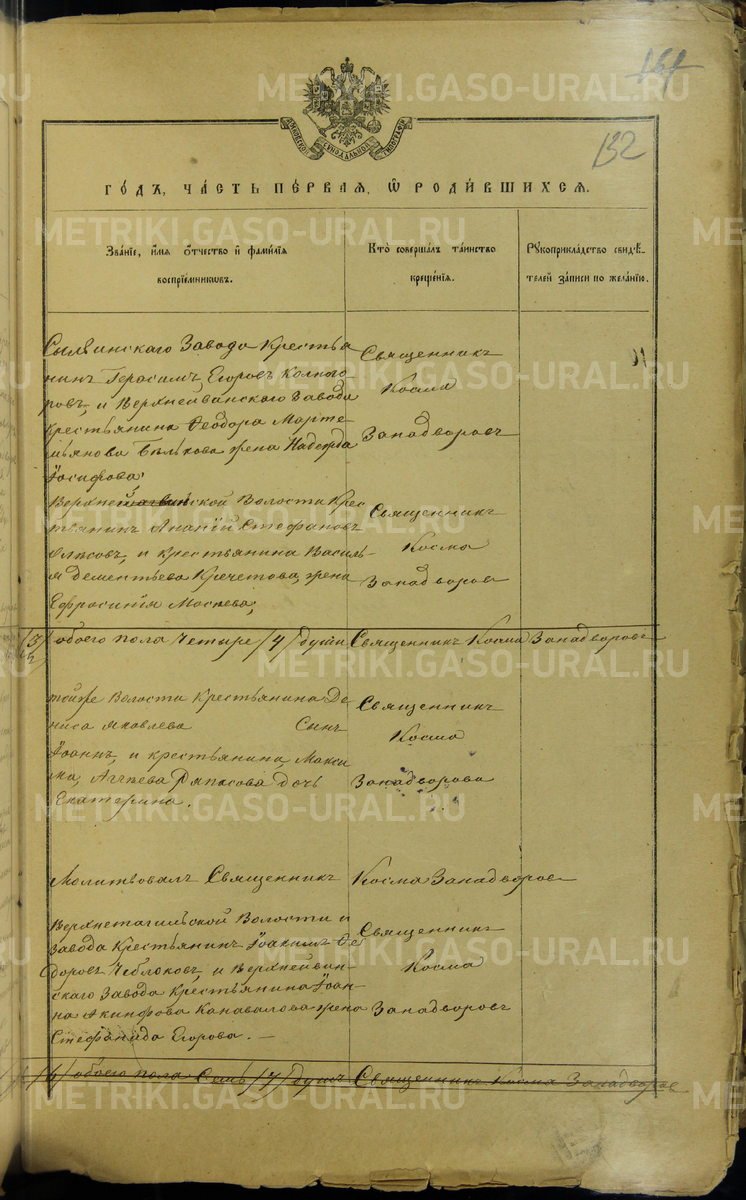 METRIKI.GASO-URAL.RU
132
МОСКОВСКОЙ СѴНОДАЛЬНОЙ ТИПОГРАФІИ
ГО́ДЪ, ЧА́СТЬ ПЕ́РВАЯ, Ѡ РОДИ́ВШИХСЯ.
Зва́нїе, и́мя ѻ́тчество и҆ фами́лїя воспрїе́мникѡвъ.
Кто̀ соверша́лъ та́инство креще́нїя.
Рꙋкоприкла́дство свидѣ́телей за́писи по жела́нїю.
Сылвинскаго Завода Крестья
нинъ Герасимъ Егоровъ
и Верхнейвинскаго Завода
крестьянина Ѳеодора Марте
мьянова Бѣлькова жена Надежда
Іосифова
Священникъ
Косма
Западворовъ
Волости Крес
тьянинъ Ананій Стефановъ
и крестьянина Василь
я Дементьева Кречетова, жена
Ефросинія
Священникъ
Косма
Западворовъ
обоего пола Четыре /4/ души Священникъ Косма Западворовъ
тойже Волости Крестьянина Де
ниса Яковлева Сынъ
Іоаннъ, и крестьянина Макси
ма, дочь
Екатерина.
Священникъ
Косма
Западворовъ
Молитвовалъ Священникъ Косма Западворовъ
Верхнетагильской Волости и
Завода Крестьянинъ Іоакимъ Ѳе
доровъ и Верхнейвин
скаго Завода Крестьянина Іоан
на Акинфова Канавалова жена
Стефанида Егорова. —
Священникъ
Косма
Западворовъ
обоего пола Семь /7/ душъ Священникъ Косма Западворовъ